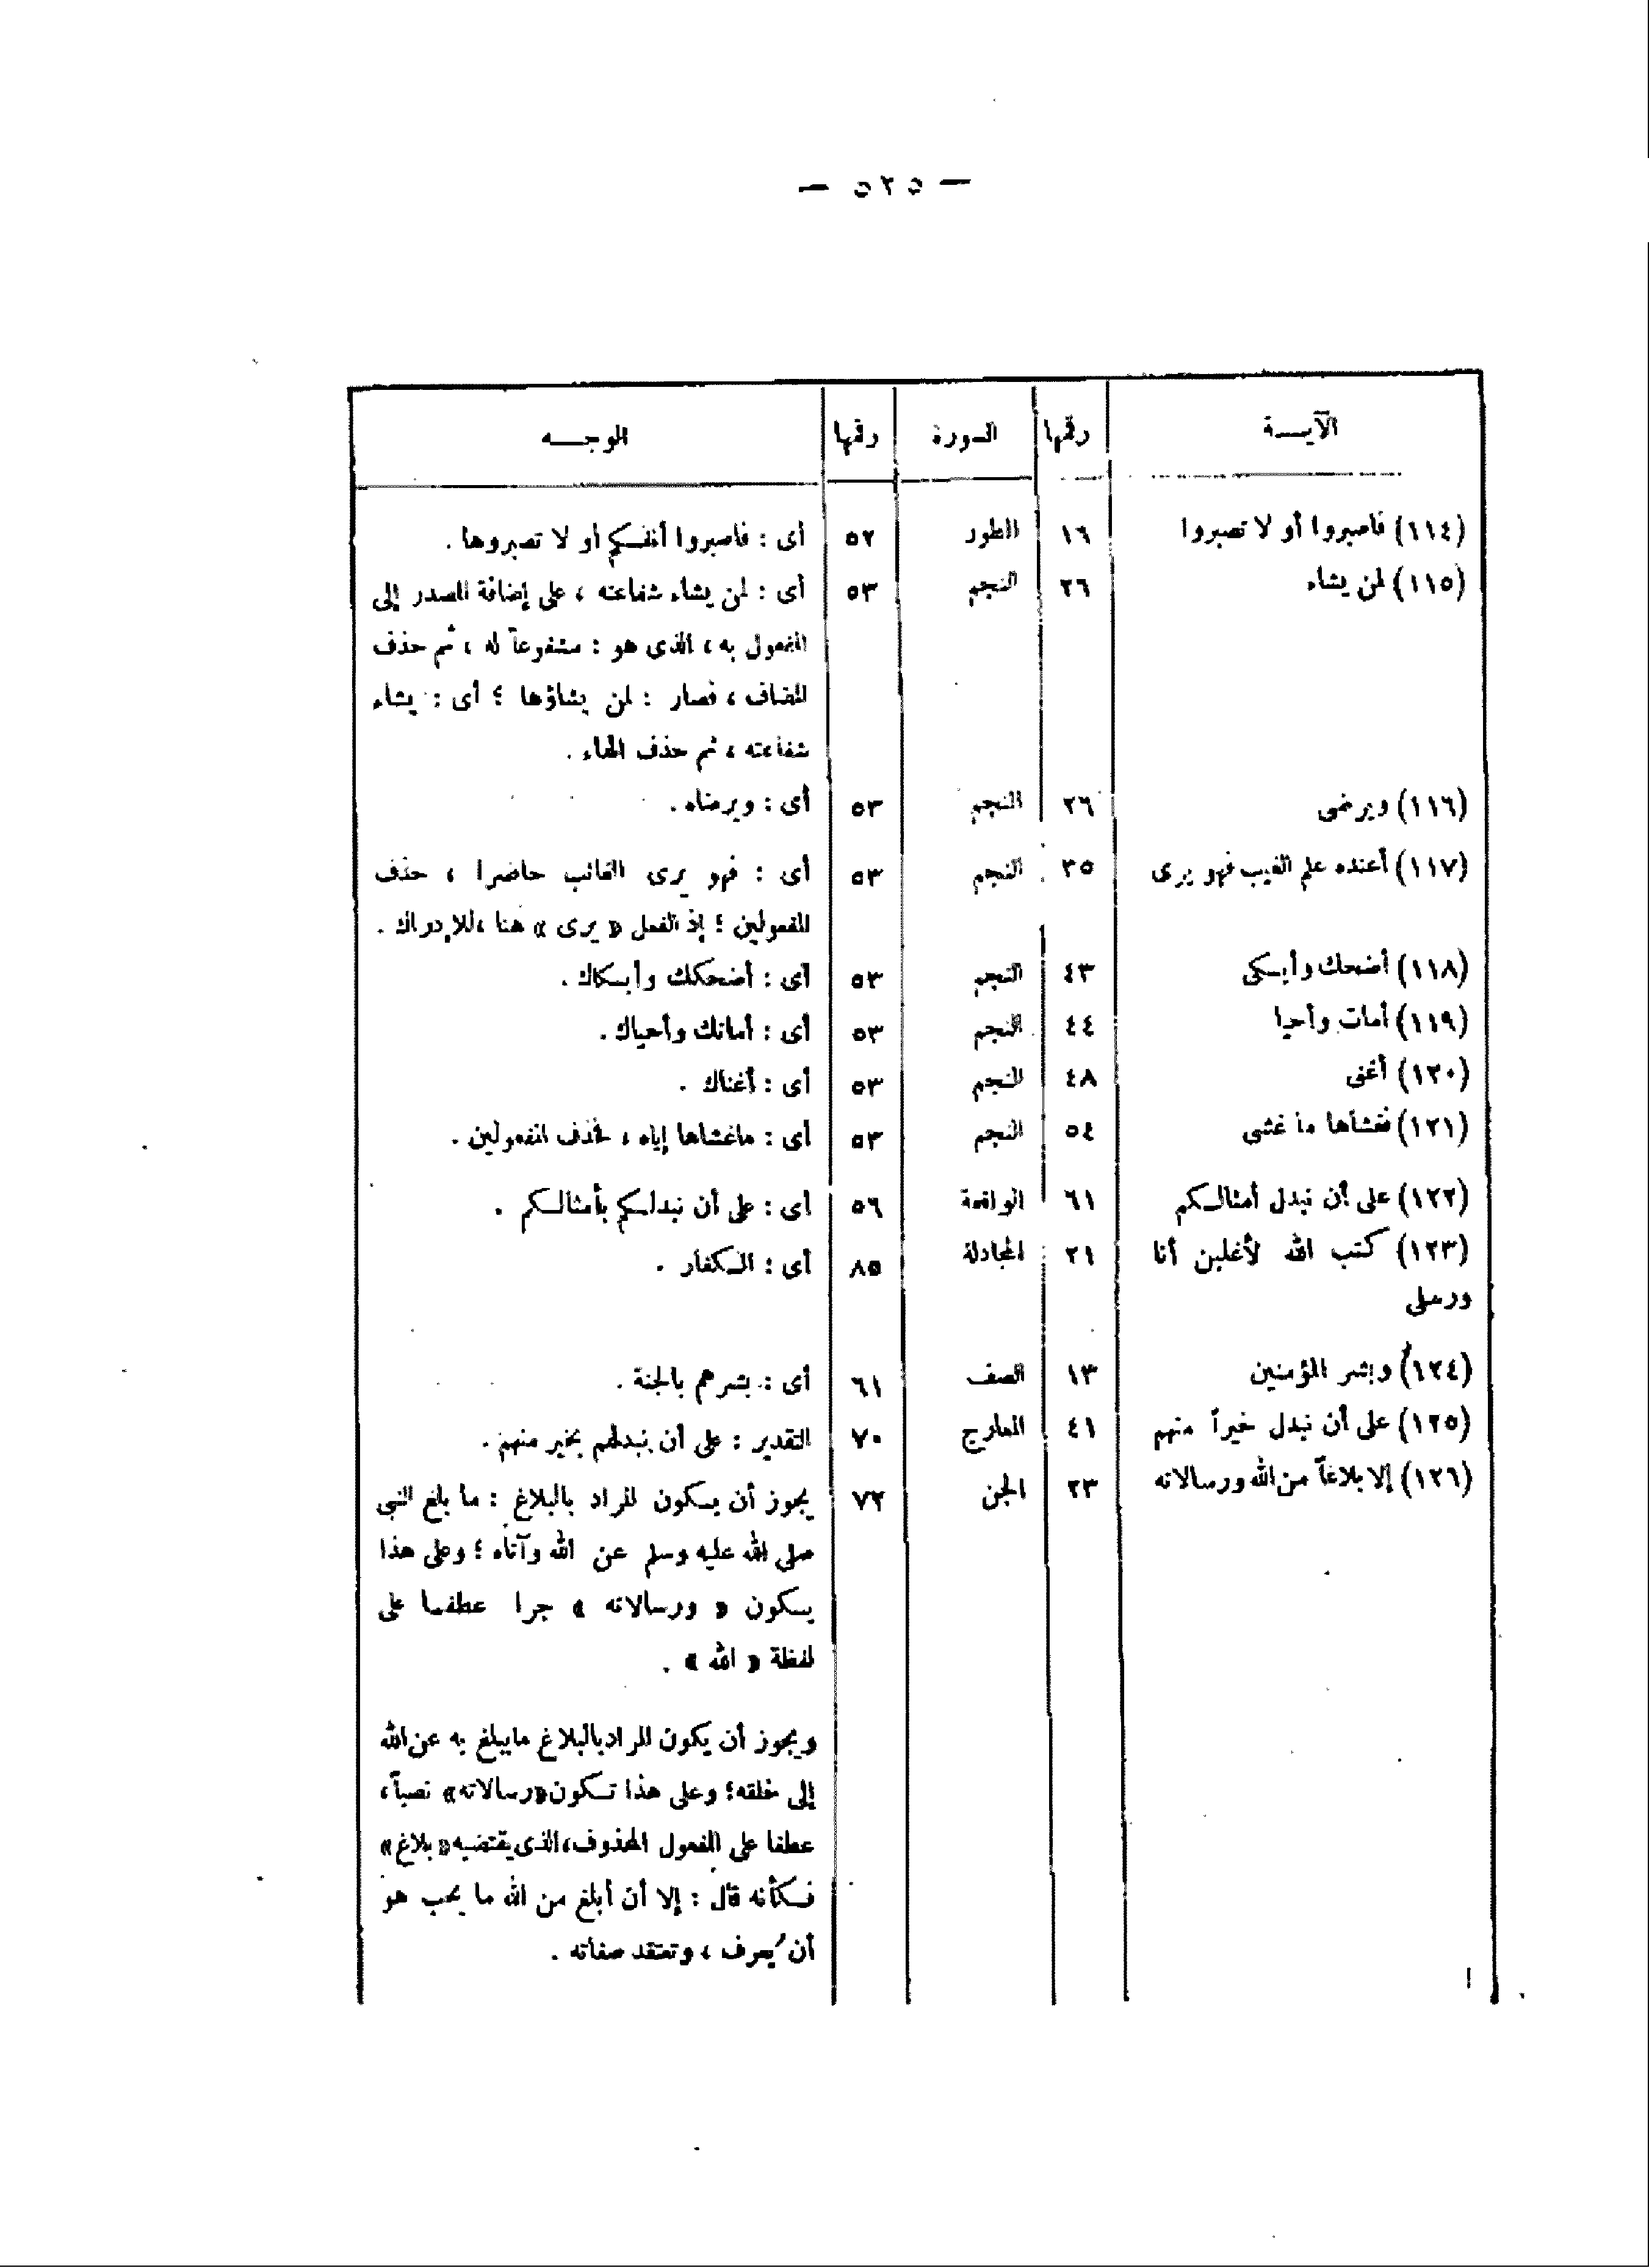 — ٥٢٥ —
الآيــة رقمها السورة رقمها الوجـــه
(١١٤) فاصبروا أو لا تصبروا ١٦ الطور ٥٢ أى : فاصبروا أنفسكم أو لا تصبروها .
(١١٥) لمن يشاء ٢٦ النجم ٥٣ أى : لمن يشاء شفاعته ، على إضافة المصدر إلى
المفعول به ، الذى هو : مشفوعاً له ، ثم حذف
المضاف ، فصار : لمن يشاؤها ؛ أى : يشاء
شفاعته ، ثم حذف الهاء .
(١١٦) ويرضى ٢٦ النجم ٥٣ أى : ويرضاه .
(١١٧) أعنده علم الغيب فهو يرى ٣٥ النجم ٥٣ أى : فهو يرى الغائب حاضرا ، حذف
المفعولين ؛ إذ الفعل « يرى » هنا ، للإدراك .
(١١٨) أضحك وأبـكى ٤٣ النجم ٥٣ أى : أضحكك وأبـكاك .
(١١٩) أمات وأحيا ٤٤ النجم ٥٣ أى : أماتك وأحياك .
(١٢٠) أغنى ٤٨ النجم ٥٣ أى : أغناك .
(١٢١) فغشاها ما غشى ٥٤ النجم ٥٣ أى : ماغشاها إياه ، فحذف المفعولين .
(١٢٢) على أن نبدل أمثالـكم ٦١ الواقعة ٥٦ أى : على أن نبدلـكم بأمثالـكم .
(١٢٣) كتب الله لأغلبن أنا ٢١ المجادلة ٨٥ أى : الـكفار .
ورسلى
(١٢٤) وبشر المؤمنين ١٣ الصف ٦١ أى : بشرهم بالجنة .
(١٢٥) على أن نبدل خيراً منهم ٤١ المعارج ٧٠ التقدير : على أن نبدلهم بخير منهم .
(١٢٦) إلا بلاغاً من الله ورسالاته ٢٣ الجن ٧٢ يجوز أن يـكون المراد بالبلاغ : ما بلغ النبى
صلى الله عليه وسلم عن الله وآتاه ؛ وعلى هذا
يـكون « ورسالاته » جرا عطفـا على
لفظة « الله » .
ويجوز أن يكون المراد بالبلاغ مايبلغ به عن الله
إلى خلقه؛ وعلى هذا تـكون «رسالاته» نصباً،
عطفا على المفعول المحذوف، الذى يقتضيه «بلاغ»
فـكأنه قال : إلا أن أبلغ من الله ما يحب هو
أن يُعرف ، وتعتقد صفاته .